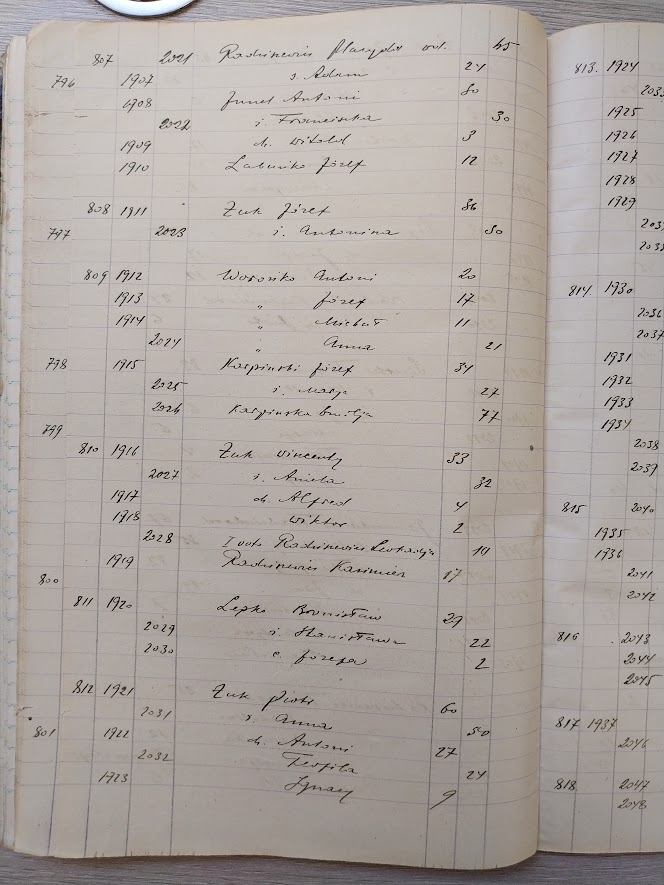 807 2021 Radziewicz Magda wd. 45
796 1907 s Adam 24
1908 Junel Antoni 80
2022 ż. Franciszka 30
1909 ch. Witold 3
1910 Łabuńko Józef 12
808 1911 Żuk Józef 86
797 2023 ż. Antonina 80
809 1912 Woronko Antoni 20
1913 " Józef 17
1914 " Michał 11
2024 " Anna 21
798 1915 Karpiński Józef 34
2025 ż. Marja 27
2026 Karpińska Emilja 77
799
810 1916 Żuk Wincenty 33
2027 ż. Aniela 32
1917 ch. Alfred 4
1918 Wiktor 2
2028 I voto Radziewicz Leokadja 19
1919 Radziewicz Kazimierz 17
800
811 1920 Lepko Bronisław 29
2029 ż. Stanisława 22
2030 c. Józefa 2
812 1921 Żuk Piotr 60
2031 ż. Anna 50
801 1922 ch. Antoni 27
2032 Teofila 24
1923 Ignacy 9
813. 1924
2033
1925
1926
1927
1928
1929
814. 1930
2036
2037
1931
1932
1933
1934
2038
2039
815 2040
1935
1936
2041
2042
816 2043
2044
2045
817 1937
2046
818 2047
2048